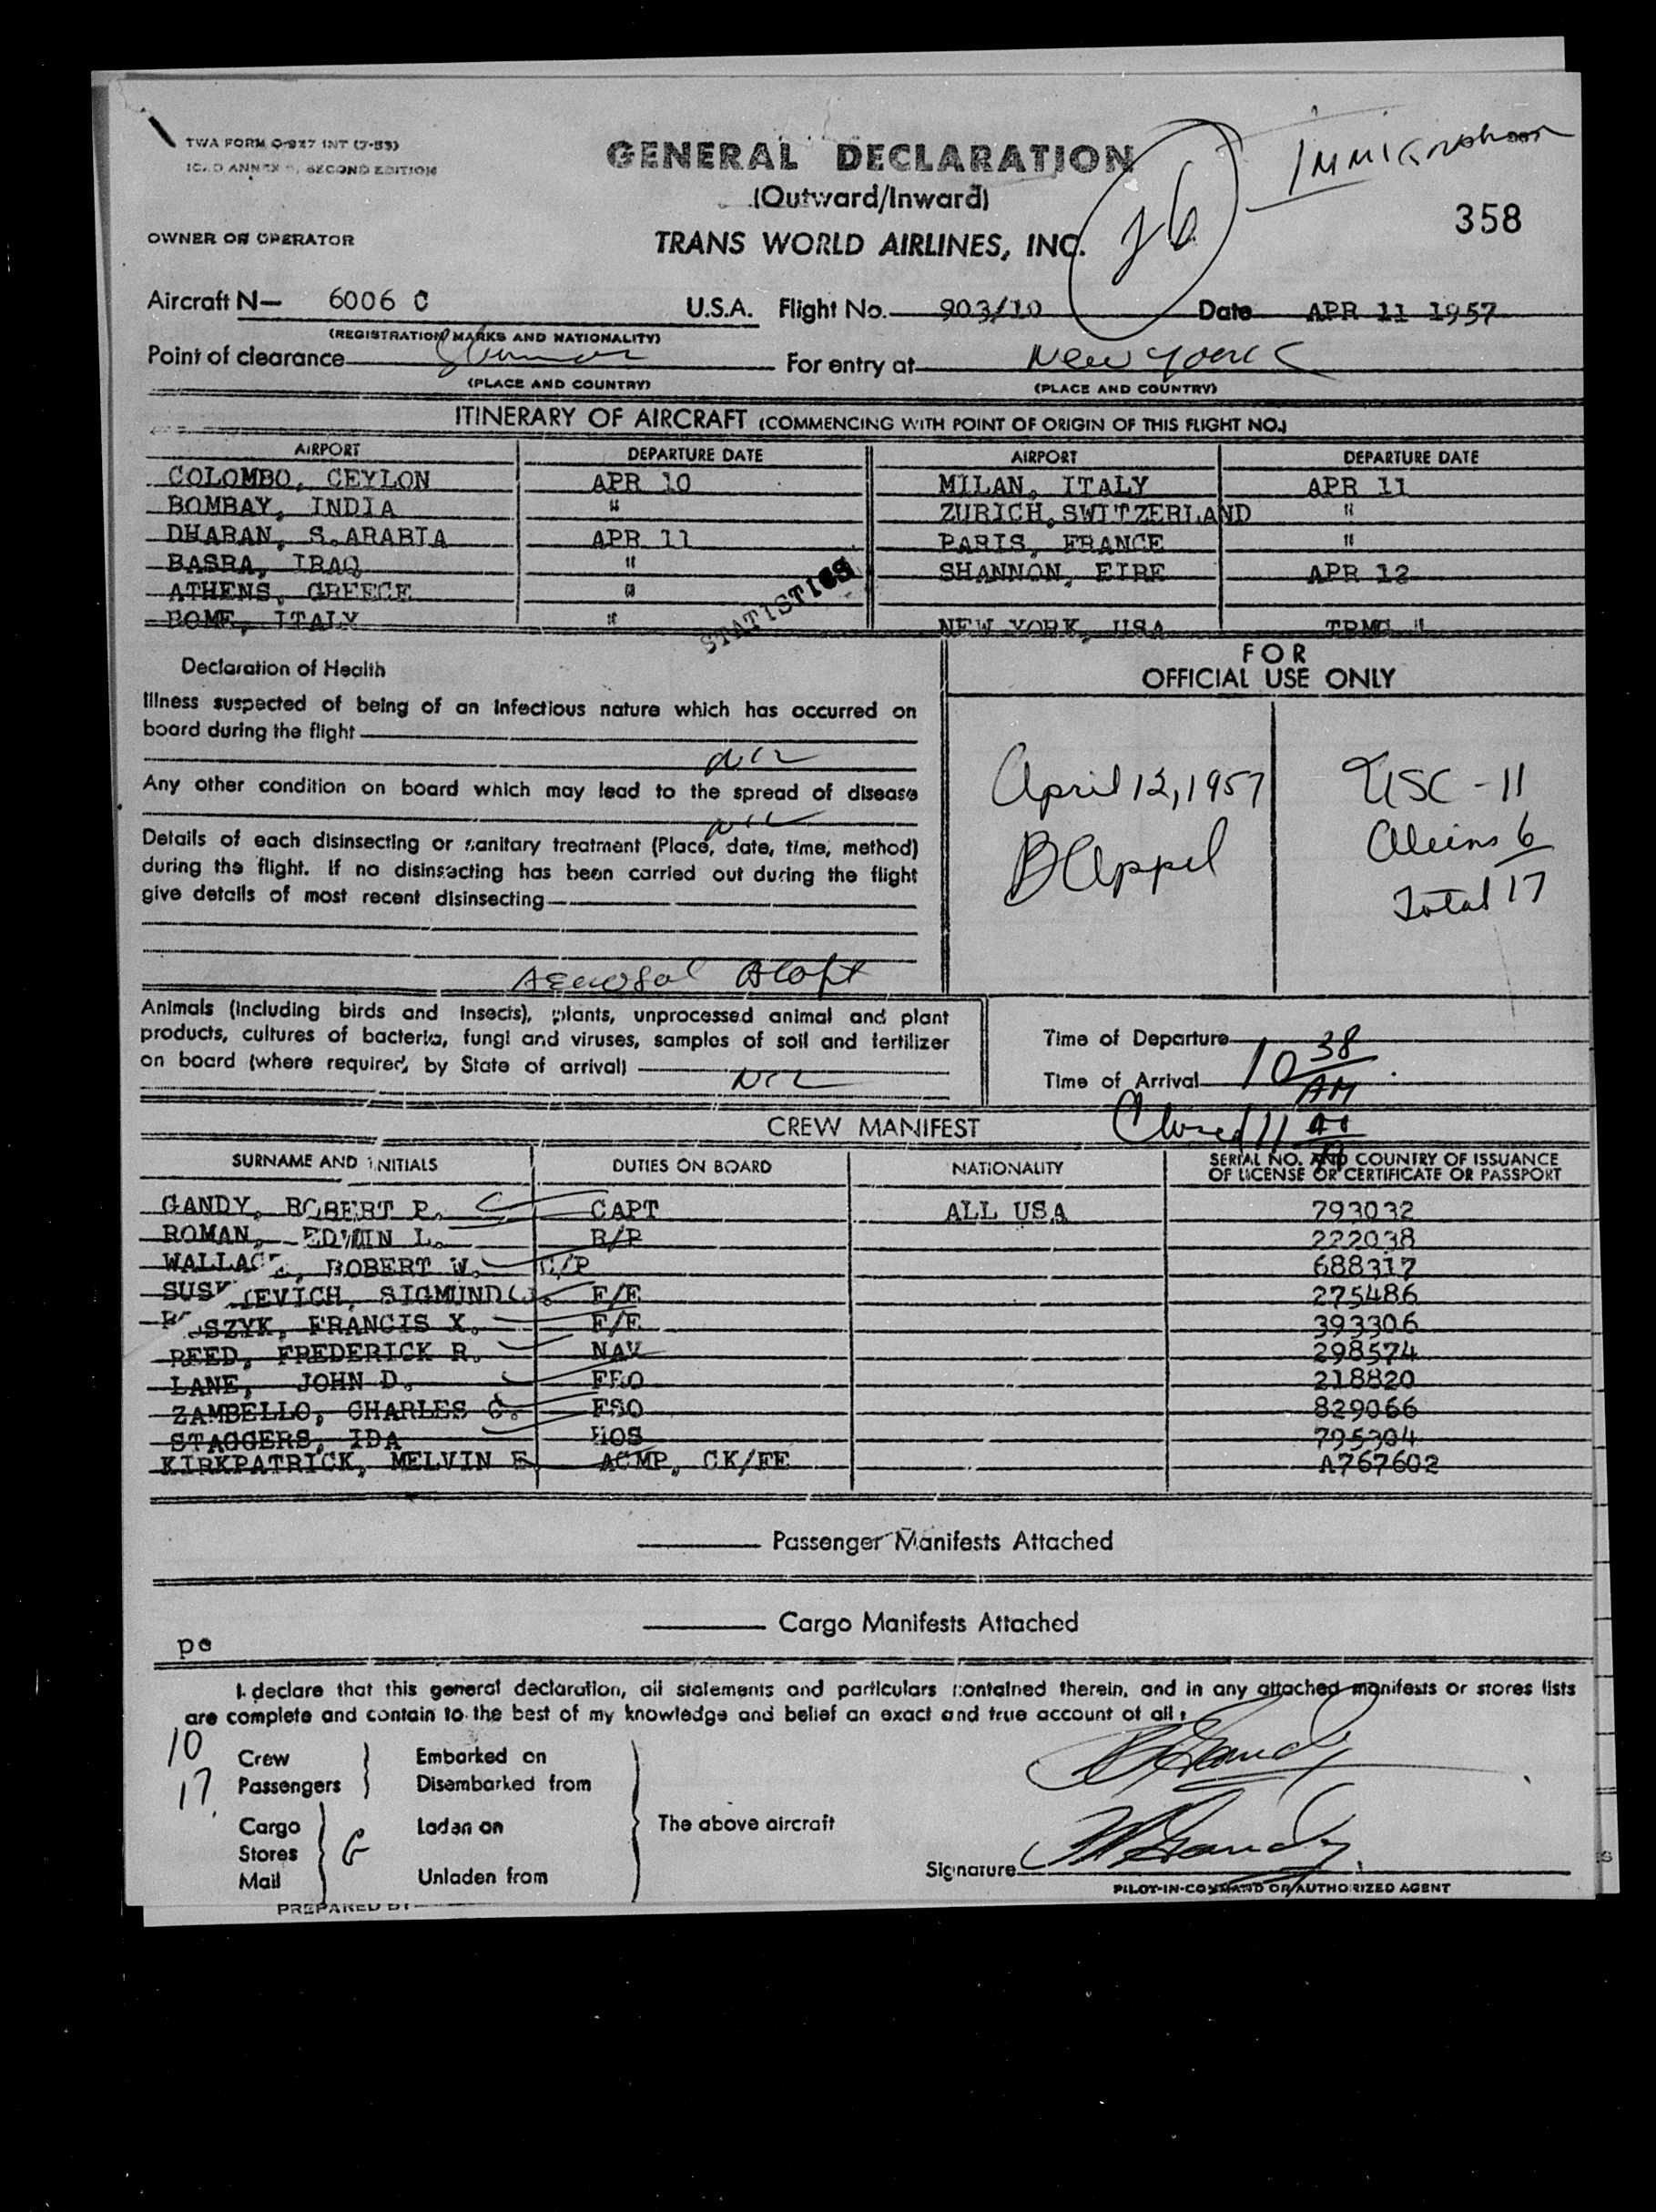 TWA FORM O-927 INT (7-53)
ICAO ANNEX 9, SECOND EDITION
GENERAL DECLARATION
(Outward/Inward)
Immigration
26
358
OWNER OR OPERATOR
TRANS WORLD AIRLINES, INC.
Aircraft N— 6006 C U.S.A. Flight No. 903/10 Date APR 11 1957
(REGISTRATION MARKS AND NATIONALITY)
Point of clearance Shannon For entry at New York
(PLACE AND COUNTRY) (PLACE AND COUNTRY)
ITINERARY OF AIRCRAFT (COMMENCING WITH POINT OF ORIGIN OF THIS FLIGHT NO.)
AIRPORT DEPARTURE DATE AIRPORT DEPARTURE DATE
COLOMBO, CEYLON APR 10 MILAN, ITALY APR 11
BOMBAY, INDIA " ZURICH, SWITZERLAND "
DHARAN, S.ARABIA APR 11 PARIS, FRANCE "
BASRA, IRAQ " SHANNON, EIRE APR 12
ATHENS, GREECE "
ROME, ITALY " NEW YORK, USA TRMG "
STATISTICS
Declaration of Health
Illness suspected of being of an infectious nature which has occurred on
board during the flight
NIL
Any other condition on board which may lead to the spread of disease
NIL
Details of each disinsecting or sanitary treatment (Place, date, time, method)
during the flight. If no disinsecting has been carried out during the flight
give details of most recent disinsecting
Aerosol Aloft
FOR
OFFICIAL USE ONLY
April 12, 1957
B Appel
USC - 11
Aleins 6
Total 17
Animals (including birds and insects), plants, unprocessed animal and plant
products, cultures of bacteria, fungi and viruses, samples of soil and fertilizer
on board (where required, by State of arrival)
NIL
Time of Departure
Time of Arrival 10 38 AM
Closed 11
CREW MANIFEST
SURNAME AND INITIALS DUTIES ON BOARD NATIONALITY SERIAL NO. AND COUNTRY OF ISSUANCE
OF LICENSE OR CERTIFICATE OR PASSPORT
GANDY, ROBERT P. CAPT ALL USA 793032
ROMAN, EDWIN L. R/P 222038
WALLACE, ROBERT W. C/P 688317
SUSKIEVICH, SIGMUND J. F/E 275486
SZYK, FRANCIS X. F/E 393306
REED, FREDERICK R. NAV 298574
LANE, JOHN D. FRO 218820
ZAMBELLO, CHARLES C. FSO 829066
STAGGERS, IDA HOS 795304
KIRKPATRICK, MELVIN E. ACMP, CK/FE A767602
Passenger Manifests Attached
Cargo Manifests Attached
pe
I declare that this general declaration, all statements and particulars contained therein, and in any attached manifests or stores lists
are complete and contain to the best of my knowledge and belief an exact and true account of all:
10 Crew Embarked on
17 Passengers Disembarked from
Cargo Laden on The above aircraft
Stores
Mail Unladen from
Signature
PILOT-IN-COMMAND OR AUTHORIZED AGENT
PREPARED BY